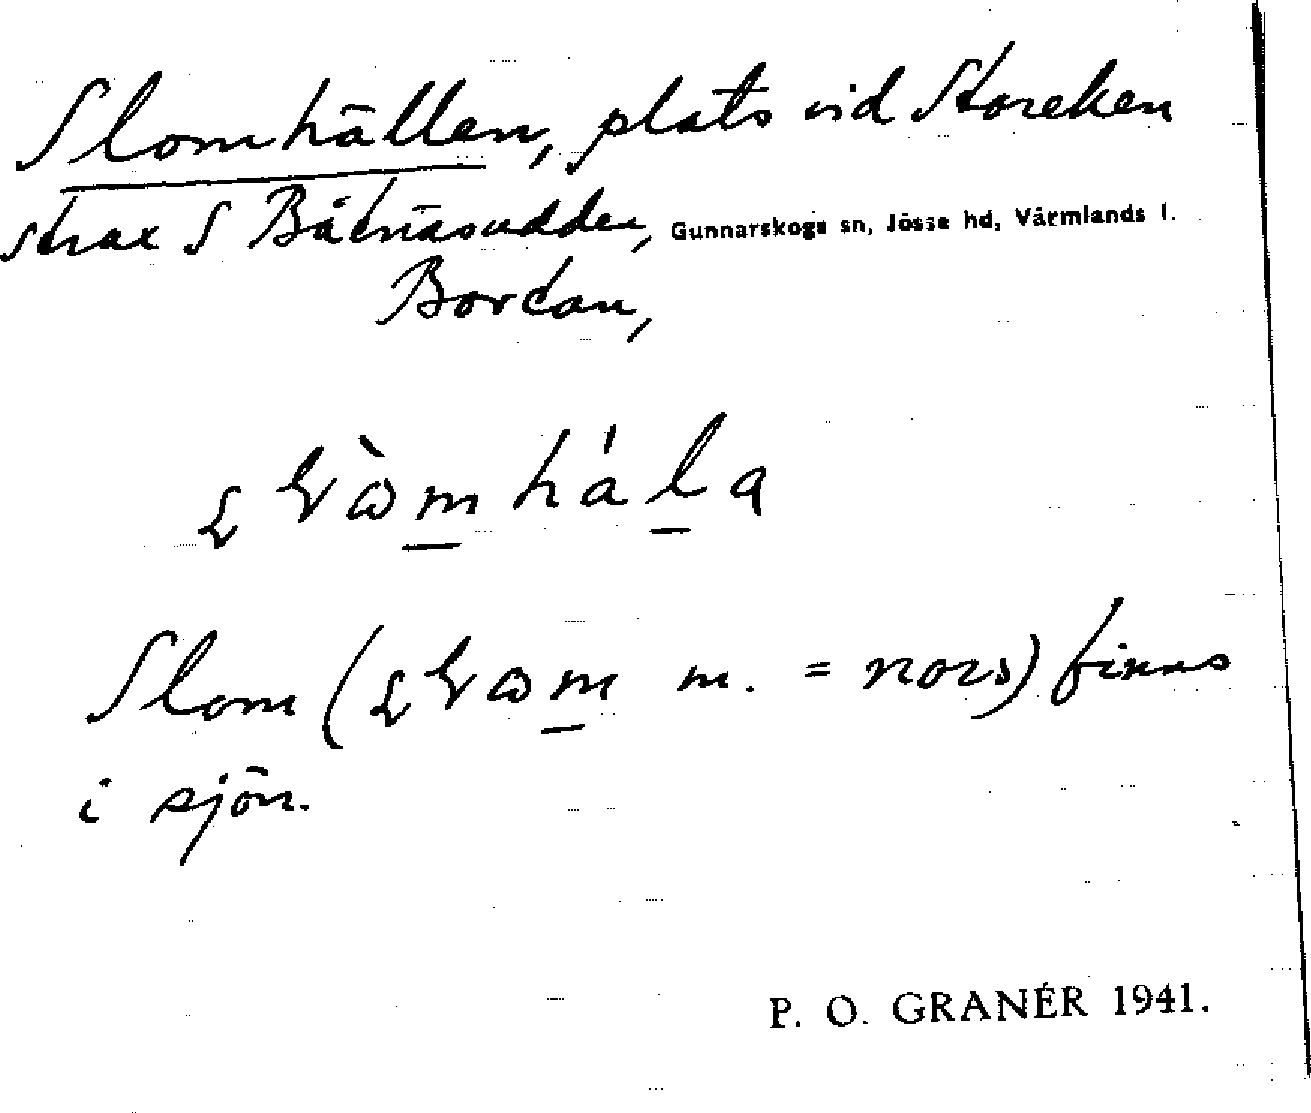 Slomhällen, plats vid Storeken
strax S Båtnäsudden, Gunnarskogs sn, Jösse hd, Värmlands l.
Bordan,
Slom ( m. = nors) finns
i sjön.
P. O. GRANÉR 1941.